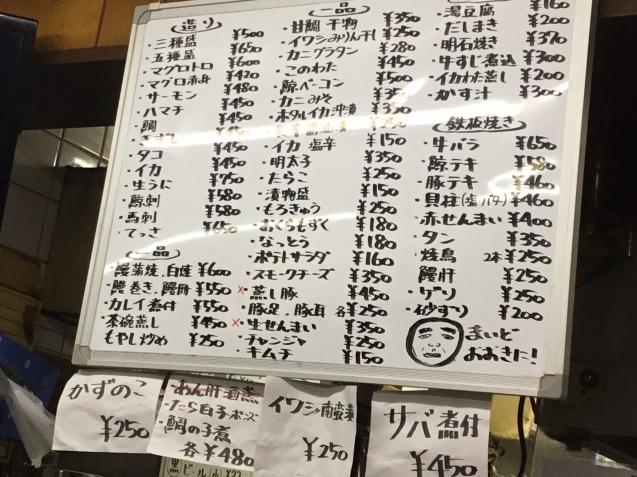 造り
・三種盛 ¥500
・五種盛 ¥650
・マグロトロ ¥600
・マグロ赤身 ¥420
・サーモン ¥480
・ハマチ ¥450
・鯛 ¥450
・きずし
・タコ ¥450
・イカ ¥450
・生うに ¥750
・鯨刺 ¥580
・馬刺 ¥580
・てっさ ¥650
一品
・鰻蒲焼、白焼 ¥600
・鰻巻き、鰻肝 ¥550
・カレイ煮付 ¥550
・茶碗蒸し ¥450
もやし炒め ¥250
一品
・甘鯛 干物 ¥350
・イワシみりん干し ¥250
・カニグラタン ¥280
・このわた ¥450
・鯨ベーコン ¥500
・カニみそ ¥350
・ホタルイカ沖漬 ¥350
・イカ 塩辛 ¥150
・明太子 ¥350
・たらこ ¥250
・漬物盛 ¥150
・もろきゅう ¥250
・おくらもずく ¥180
・なっとう ¥180
・ポテトサラダ ¥160
・スモークチーズ ¥350
×・蒸し豚 ¥450
・豚足、豚耳 各¥250
×・生せんまい ¥350
・チャンジャ ¥250
・キムチ ¥150
・湯豆腐 ¥160
・だしまき ¥200
・明石焼き ¥370
・牛すじ煮込 ¥300
・イカわた蒸し ¥200
・かす汁 ¥200
鉄板焼き
・牛バラ ¥650
・鯨テキ ¥580
・豚テキ ¥460
・貝柱(塩・バター) ¥460
・赤せんまい ¥400
・タン ¥350
・焼鳥 2本 ¥250
・鰻肝 ¥250
・ゲソ ¥250
・砂ずり ¥200
まいど
おおきに!
かずのこ
¥250
あん肝酒蒸
・たら白子ポン酢
・鯛の子煮
各¥480
イワシ南蛮漬
¥250
サバ煮付
¥450
ビール(小)